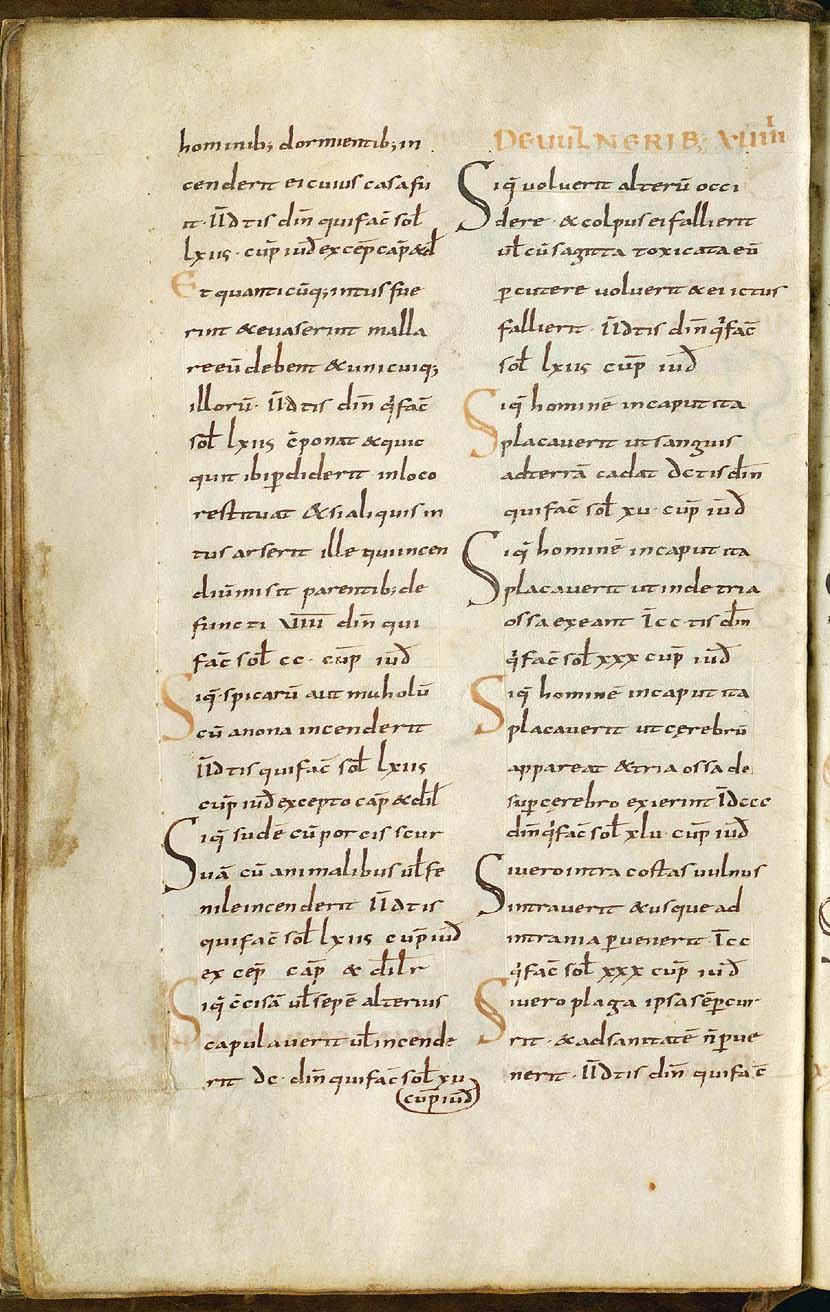 hominib; dormientib; in
cenderit ei cuius casa fu
it · īīd tis din̄ qui fac̄ sol̄
lxiis · cup̄ iud̄ excep̄ cap̄ & dl̄
Et quanticūq; intus fue
rint & evaserint malla
re eū debent & unicuiq;
illorū · īīd tis din̄ q̄ fac̄
sol̄ lxiis c̄ponat & quic
quit ibi p̄diderit in loco
restituat & si aliquis in
tus arserit ille qui incen
diū misit parentib; de
functi viiii din̄ qui
fac̄ sol̄ cc · cup̄ iud̄
Siq̄ · spicarū aut muholū
cū anona incenderit
īīd tis qui fac̄ sol̄ lxiis
cup̄ iud̄ excepto cap̄ & dil̄
Siq̄ sudē cū porcis scur
uā cū animalibus ul̄ fe
nile incenderit īīd tis
qui fac̄ sol̄ lxiis cup̄ iud̄
excep̄ cap̄ & dilr̄
Siq̄ c̄cisā ul̄ sepē alterius
capulaverit ul̄ incende
rit dc · din̄ qui fac̄ sol̄ xv
cup̄ iud̄
DE VULNERIB; XVIIII
Siq̄ voluerit alterū occi
dere · & colpus ei fallierit
ul̄ cū sagitta toxicata eū
p̄cutere voluerit & ei ictus
fallierit · īīd tis din̄ q̄ fac̄
sol̄ lxiis cup̄ iud̄
Siq̄ hominē in caput ita
placaverit ut sanguis
ad terrā cadat dc tis din̄
qui fac̄ sol̄ xv · cup̄ iud̄
Siq̄ hominē in caput ita
placaverit ut inde tria
ossa exeant īcc · tis din̄
q̄ fac̄ sol̄ xxx cup̄ iud̄
Siq̄ hominē in caput ita
placaverit ut cęrebrū
appareat & tria ossa de
sup cęrebro exierint īdccc
din̄ q̄ fac̄ sol̄ xlv · cup̄ iud̄
Si vero intra costas vulnus
intraverit & usque ad
intrania p̄venerit · īcc
q̄ fac̄ sol̄ xxx cup̄ iud̄
Si vero plaga ipsa sēp cur
rit · & ad sanitatē n̄ p̄ve
nerit · īīd tis din̄ qui fac̄